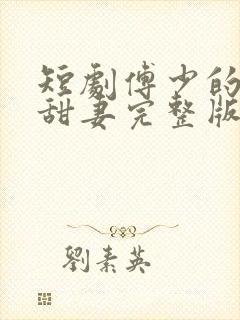 短劇傅少的
甜妻完整版
劉素英